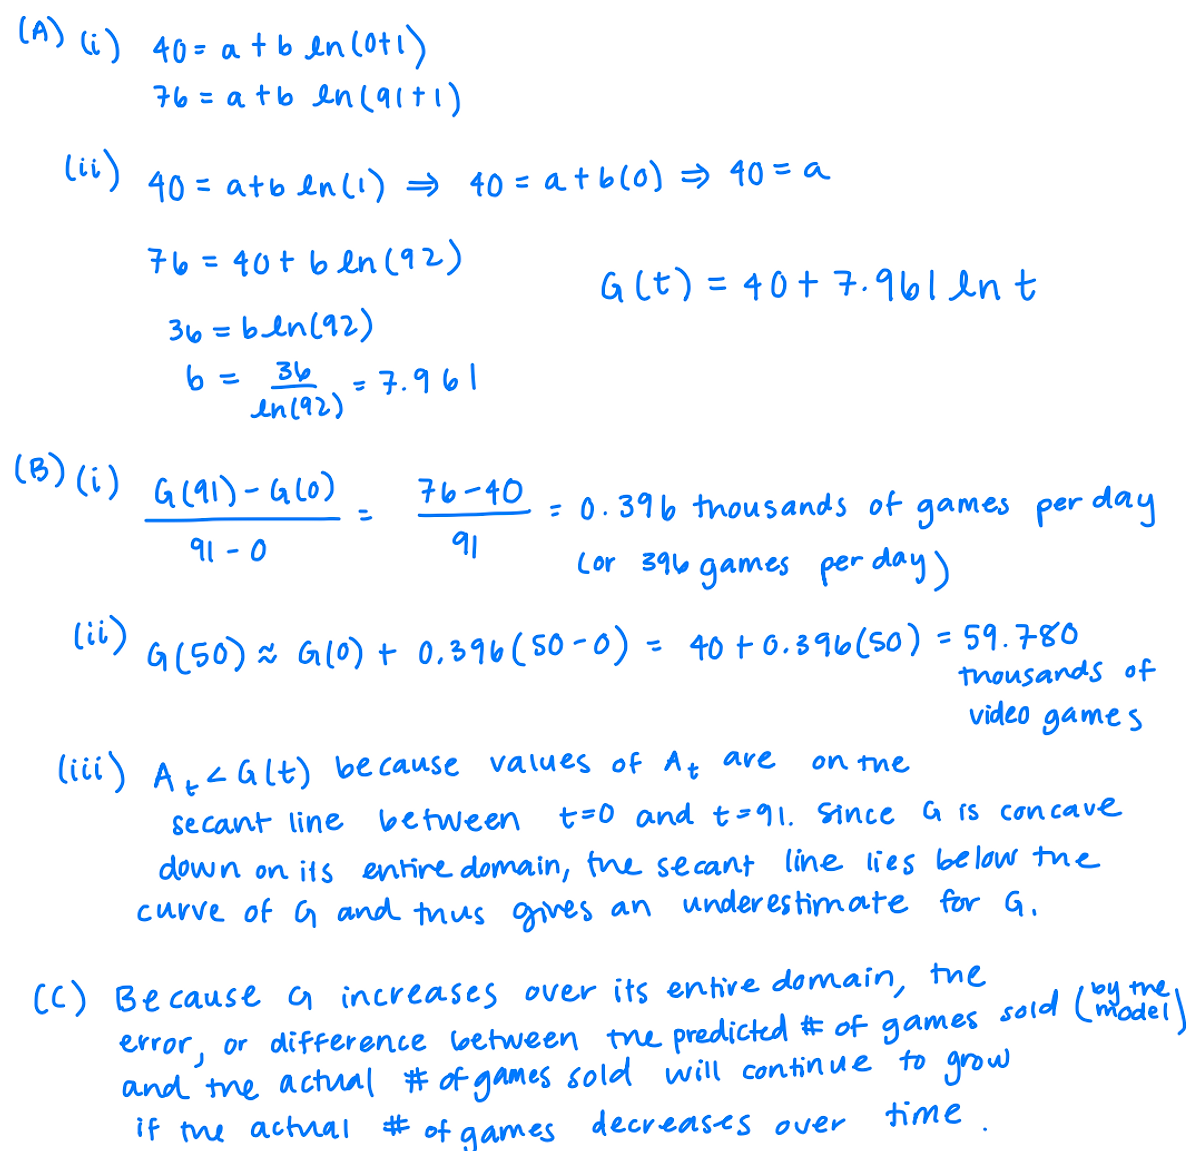 (A) (i) 40 = a + b ln(0+1)
76 = a + b ln(91+1)
(ii) 40 = a+b ln(1) ⇒ 40 = a + b(0) ⇒ 40 = a
76 = 40 + b ln(92)
G(t) = 40 + 7.961 ln t
36 = b ln(92)
b = 36/ln(92) = 7.961
(B) (i) (G(91) - G(0))/(91 - 0) = (76-40)/91 = 0.396 thousands of games per day
(or 396 games per day)
(ii) G(50) ≈ G(0) + 0.396(50-0) = 40 + 0.396(50) = 59.780
thousands of
video games
(iii) A_t < G(t) because values of A_t are on the
secant line between t=0 and t=91. Since G is concave
down on its entire domain, the secant line lies below the
curve of G and thus gives an underestimate for G.
(C) Because G increases over its entire domain, the
error, or difference between the predicted # of games sold (by the model)
and the actual # of games sold will continue to grow
if the actual # of games decreases over time.